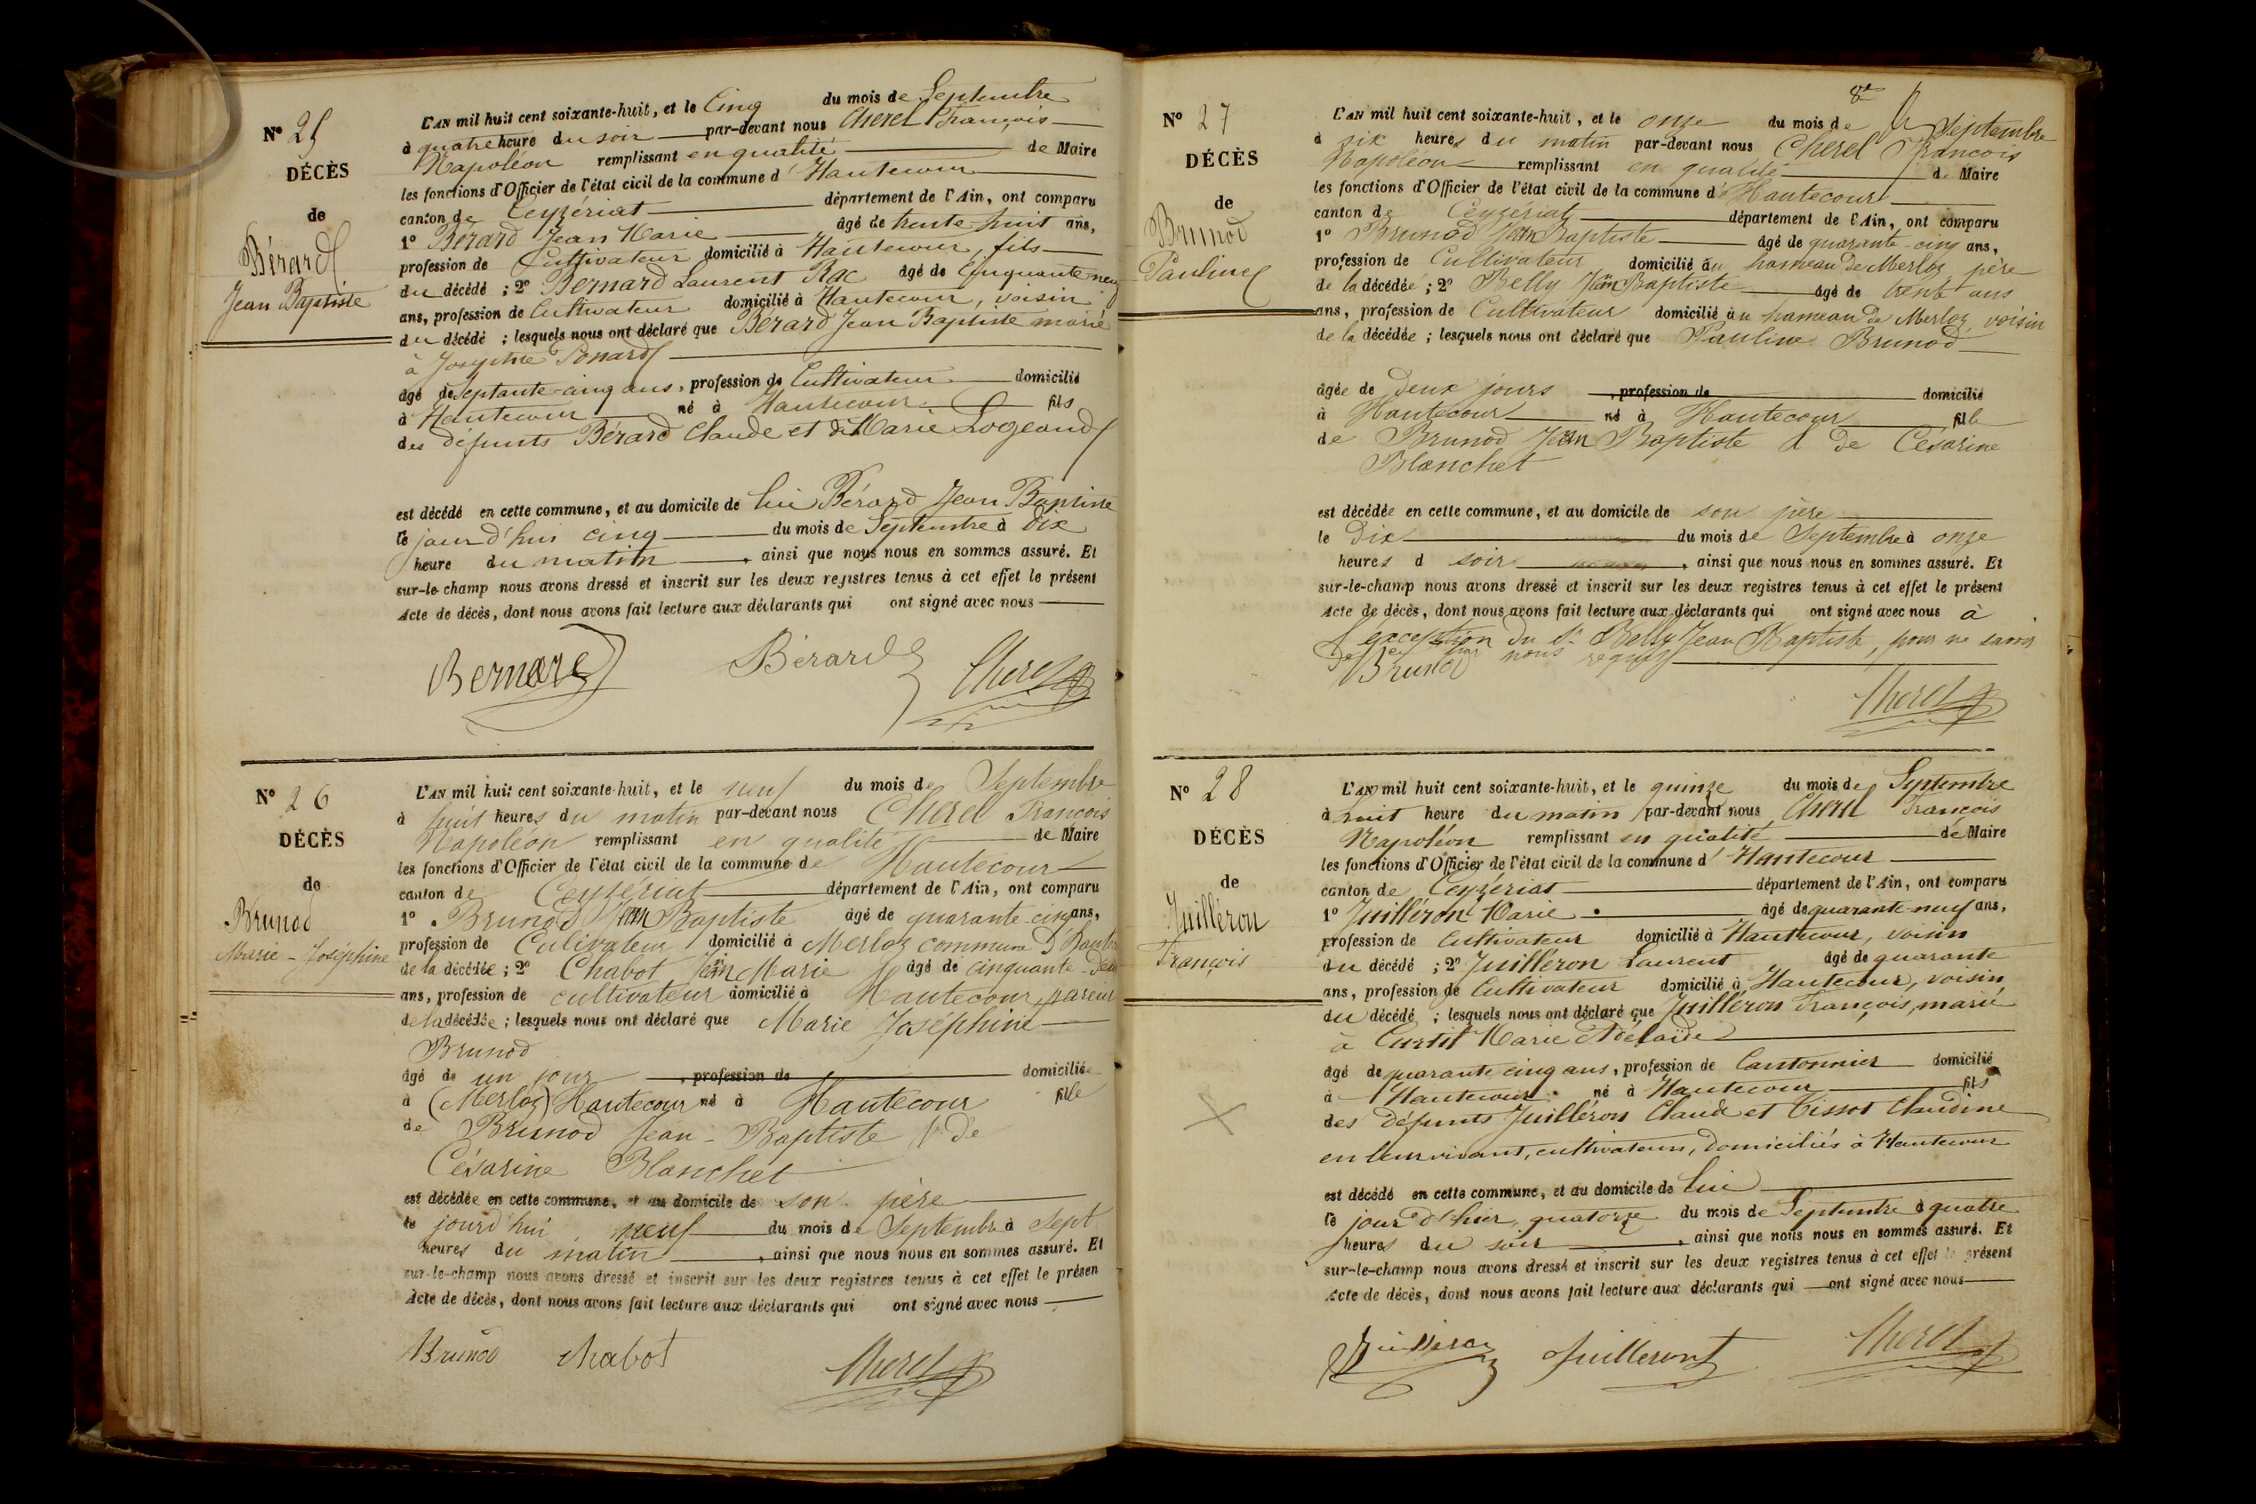 N° 25
DÉCÈS
de
Bérard
Jean Baptiste
L'AN mil huit cent soixante-huit, et le Cinq du mois de Septembre
à quatre heure du soir par-devant nous Cherel François
Napoléon remplissant en qualité de Maire
les fonctions d'Officier de l'état civil de la commune d'Hautecour
canton de Ceyzériat département de l'Ain, ont comparu
1° Bérard Jean Marie âgé de trente-huit ans,
profession de Cultivateur domicilié à Hautecour, fils
du décédé ; 2° Bernard Laurent Roc âgé de Cinquante neuf
ans, profession de Cultivateur domicilié à Hautecour, voisin
du décédé ; lesquels nous ont déclaré que Bérard Jean Baptiste marié
à Josephte Ponard
âgé de septante-cinq ans, profession de Cultivateur domicilié
à Hautecour né à Hautecour fils
des défunts Bérard Claude et de Marie Logeand
est décédé en cette commune, et au domicile de lui Bérard Jean Baptiste
le jourd'hui cinq du mois de Septembre à Dix
heure du matin, ainsi que nous nous en sommes assuré. Et
sur-le-champ nous avons dressé et inscrit sur les deux registres tenus à cet effet le présent
Acte de décès, dont nous avons fait lecture aux déclarants qui ont signé avec nous
Bernard Bérard Cherel
N° 26
DÉCÈS
de
Brunod
Marie-Joséphine
L'AN mil huit cent soixante-huit, et le neuf du mois de Septembre
à huit heures du matin par-devant nous Cherel François
Napoléon remplissant en qualité de Maire
les fonctions d'Officier de l'état civil de la commune de Hautecour
canton de Ceyzériat département de l'Ain, ont comparu
1° Brunod Jean Baptiste âgé de quarante-cinq ans,
profession de Culivateur domicilié à Merloz commune d'Hautec
de la décédée ; 2° Chabot Jean Marie âgé de cinquante-deux
ans, profession de cultivateur domicilié à Hautecour, parent
de la décédée ; lesquels nous ont déclaré que Marie Joséphine
Brunod
âgé de un jour, profession de domiciliée
à (Merloz) Hautecour né à Hautecour fille
de Brunod Jean-Baptiste & de
Césarine Blanchet
est décédée en cette commune, et au domicile de son père
le jourd'hui neuf du mois de Septembre à Sept
heures du matin, ainsi que nous nous en sommes assuré. Et
sur-le-champ nous avons dressé et inscrit sur les deux registres tenus à cet effet le présen
Acte de décès, dont nous avons fait lecture aux déclarants qui ont signé avec nous
Brunod Chabot Cherel
8e
N° 27
DÉCÈS
de
Brunod
Pauline
L'AN mil huit cent soixante-huit, et le onze du mois de Septembre
à six heures du matin par-devant nous Cherel François
Napoléon remplissant en qualité de Maire
les fonctions d'Officier de l'état civil de la commune d'Hautecour
canton de Ceyzériat département de l'Ain, ont comparu
1° Brunod Jean Baptiste âgé de quarante-cinq ans,
profession de Cultivateur domicilié au hameau de Merloz père
de la décédée ; 2° Belly Jean Baptiste âgé de trente ans
ans, profession de Cultivateur domicilié au hameau de Merloz, voisin
de la décédée ; lesquels nous ont déclaré que Pauline Brunod
âgée de deux jours, profession de domicilié
à Hautecour né à Hautecour fille
de Brunod Jean Baptiste & de Césarine
Blanchet
est décédée en cette commune, et au domicile de son père
le Dix du mois de Septembre à onze
heures d soir, ainsi que nous nous en sommes assuré. Et
sur-le-champ nous avons dressé et inscrit sur les deux registres tenus à cet effet le présent
Acte de décès, dont nous avons fait lecture aux déclarants qui ont signé avec nous à
l'exception du Sr Belly Jean Baptiste, pour ne savoir
de ce par nous requis
Brunod
Cherel
N° 28
DÉCÈS
de
Juilléron
François
L'AN mil huit cent soixante-huit, et le quinze du mois de Septembre
à huit heure du matin par-devant nous Cherel François
Napoléon remplissant en qualité de Maire
les fonctions d'Officier de l'état civil de la commune d'Hautecour
canton de Ceyzériat département de l'Ain, ont comparu
1° Juilléron Marie âgé de quarante-neuf ans,
profession de Cultivateur domicilié à Hautecour, voisin
du décédé ; 2° Juilléron Laurent âgé de quarante
ans, profession de Cultivateur domicilié à Hautecour, voisin
du décédé ; lesquels nous ont déclaré que Juilléron François, marié
à Curtit Marie Adélaïde
âgé de quarante cinq ans, profession de Cantonnier domicilié
à Hautecour né à Hautecour fils
des défunts Juilléron Claude et Tissot Claudine
en leur vivant, cultivateurs, domiciliés à Hautecour
est décédé en cette commune, et au domicile de lui
le jour d'hier, quatorze du mois de Septembre à quatre
heures du soir, ainsi que nous nous en sommes assuré. Et
sur-le-champ nous avons dressé et inscrit sur les deux registres tenus à cet effet le présent
Acte de décès, dont nous avons fait lecture aux déclarants qui ont signé avec nous
Juilleron Juilleront Cherel